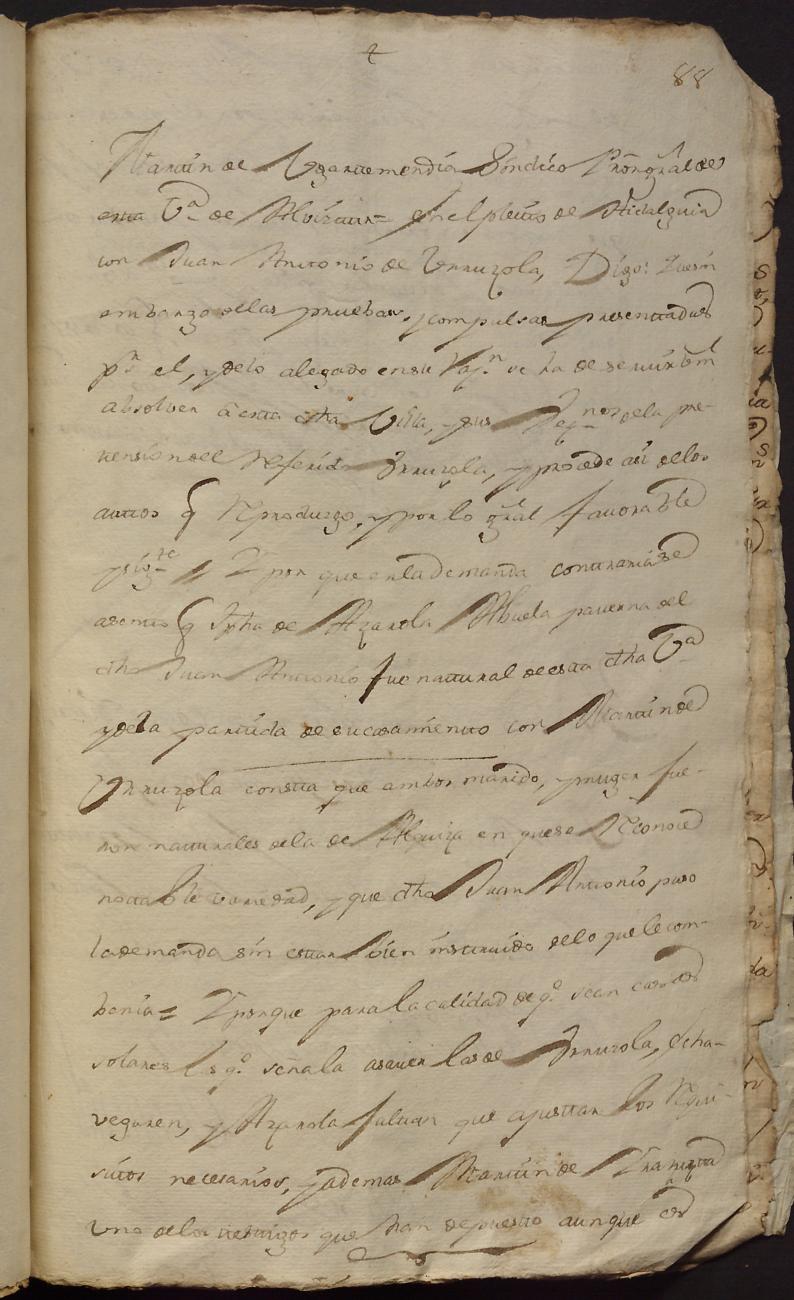 2
88
Martin de Ugartemendia Sindico Pror gral de
esta Va de Alviztur = En el pleito de Hidalguia
con Juan Antonio de Urruzola, Digo: Que sin
embargo de las pruebas, y compulsas presentadas
pr el, y de lo alegado en su se ha de servir Vm
absolver â esta dha Villa, y sus de la pre-
tension del referido Urruzola, y procede asi de los
auttos q reproduzgo, y por lo gral favorable
y sigte // Y por que en la demanda contraria se
asento q Jpha de Azarola Abuela paterna del
dho Juan Antonio fue natural de esta dha Va
y de la partida de su casamiento con Martin de
Urruzola consta que ambos marido, y muger fue-
ron naturales de la de Alquiza en que se reconoce
notable variedad, y que dho Juan Antonio puso
la demanda sin estar bien instruido de lo que le com-
benia = Y porque para la calidad de qe sean casas
solares las qe señala asaver las de Urruzola, Echa-
veguren, y Azarola faltan que ajustar los requi-
sitos necesarios, y ademas Martin de
uno de los testigos que han depuesto aunque es